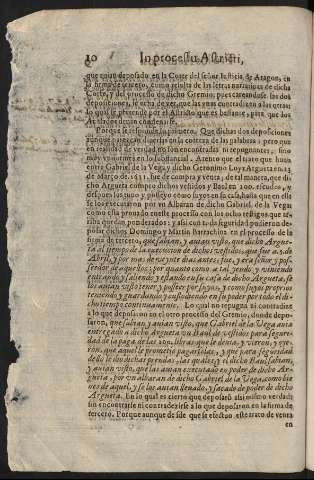 10 In processu Astricti,
que están deposado en la Corte del señor Iusticia de Aragon, en
la firma de tercero, como resulta de las letras narratiuas de dicha
Corte, y del processo de dicho Gremio; pues careandose las dos
deposiciones, se echa de ver, que las vnas contradizen a las otras:
lo qual se pretende por el Astricto que es bastante, para que dos
Porque se responde lo primero, Que dichas dos deposiciones
aunque parezcan diuersas en la corteza de las palabras; pero que
en realidad de verdad no son encontradas ni repugnantes, sino
muy vniformes en lo substancial. Atento que el trato que huuo
entre Gabriel de la Vega y dicho Geronimo Luy Argueta en 13.
de Março de 1611. fue de compra y venta, de tal manera, que di-
cho Argueta compro dichos vestidos y Baul en 200. escudos, y
despues los tuuo y posseyo como suyos en su casa hasta que en ella
se los executaron por vn Albaran de dicho Gabriel de la Vega:
como esta prouado en este processo con los ocho testigos que arri-
ba quedan ponderados: y assi con toda seguridad pudieron de-
posar dichos Domingo y Martin Barrachin en el processo de la
firma de tercero, que sabian, y auian visto, que dicho Argue-
ta al tiempo de la execucion de dichos vestidos, que fue a 5. de
Abril, y por mas de veynte dias antes: fue, y era señor y pos-
seedor de aquellos: por quanto como a tal yendo y viniendo
entrando y saliendo y estando en su casa de dicho Argueta, se
los auian visto tener, y posseer por suyos, y como suyos proprios
teniendo y guardando y vsufructuando en su poder por todo el di-
cho tiempo continuamente. Lo qual no repugna ni contradize
a lo que deposaron en el otro processo del Gremio, donde depo-
saron, que sabian, y auian visto, que Gabriel de la Vega auia
entregado a dicho Argueta vn Baul de vestidos para seguri-
dad de la paga de las 200. libras que le deuia, y vieron, y oye-
ron, que aquel le prometio pagarselas, y que para seguridad
de si le dio dichas prendas, las quales; y el dicho Baul sabian,
y auian visto, que las auian executado en poder de dicho Ar-
gueta, por vn albaran de dicho Gabriel de la Vega, como bie-
nes de aquel, y se las auian lleuado, y sacado de poder de dicho
Argueta. En lo qual es cierto que deposaron assi mismo verdad:
sin encontrarse ni contradezirse a lo que deposaron en la firma de
tercero. Porque aunque desde que se efectuo este trato de venta
en